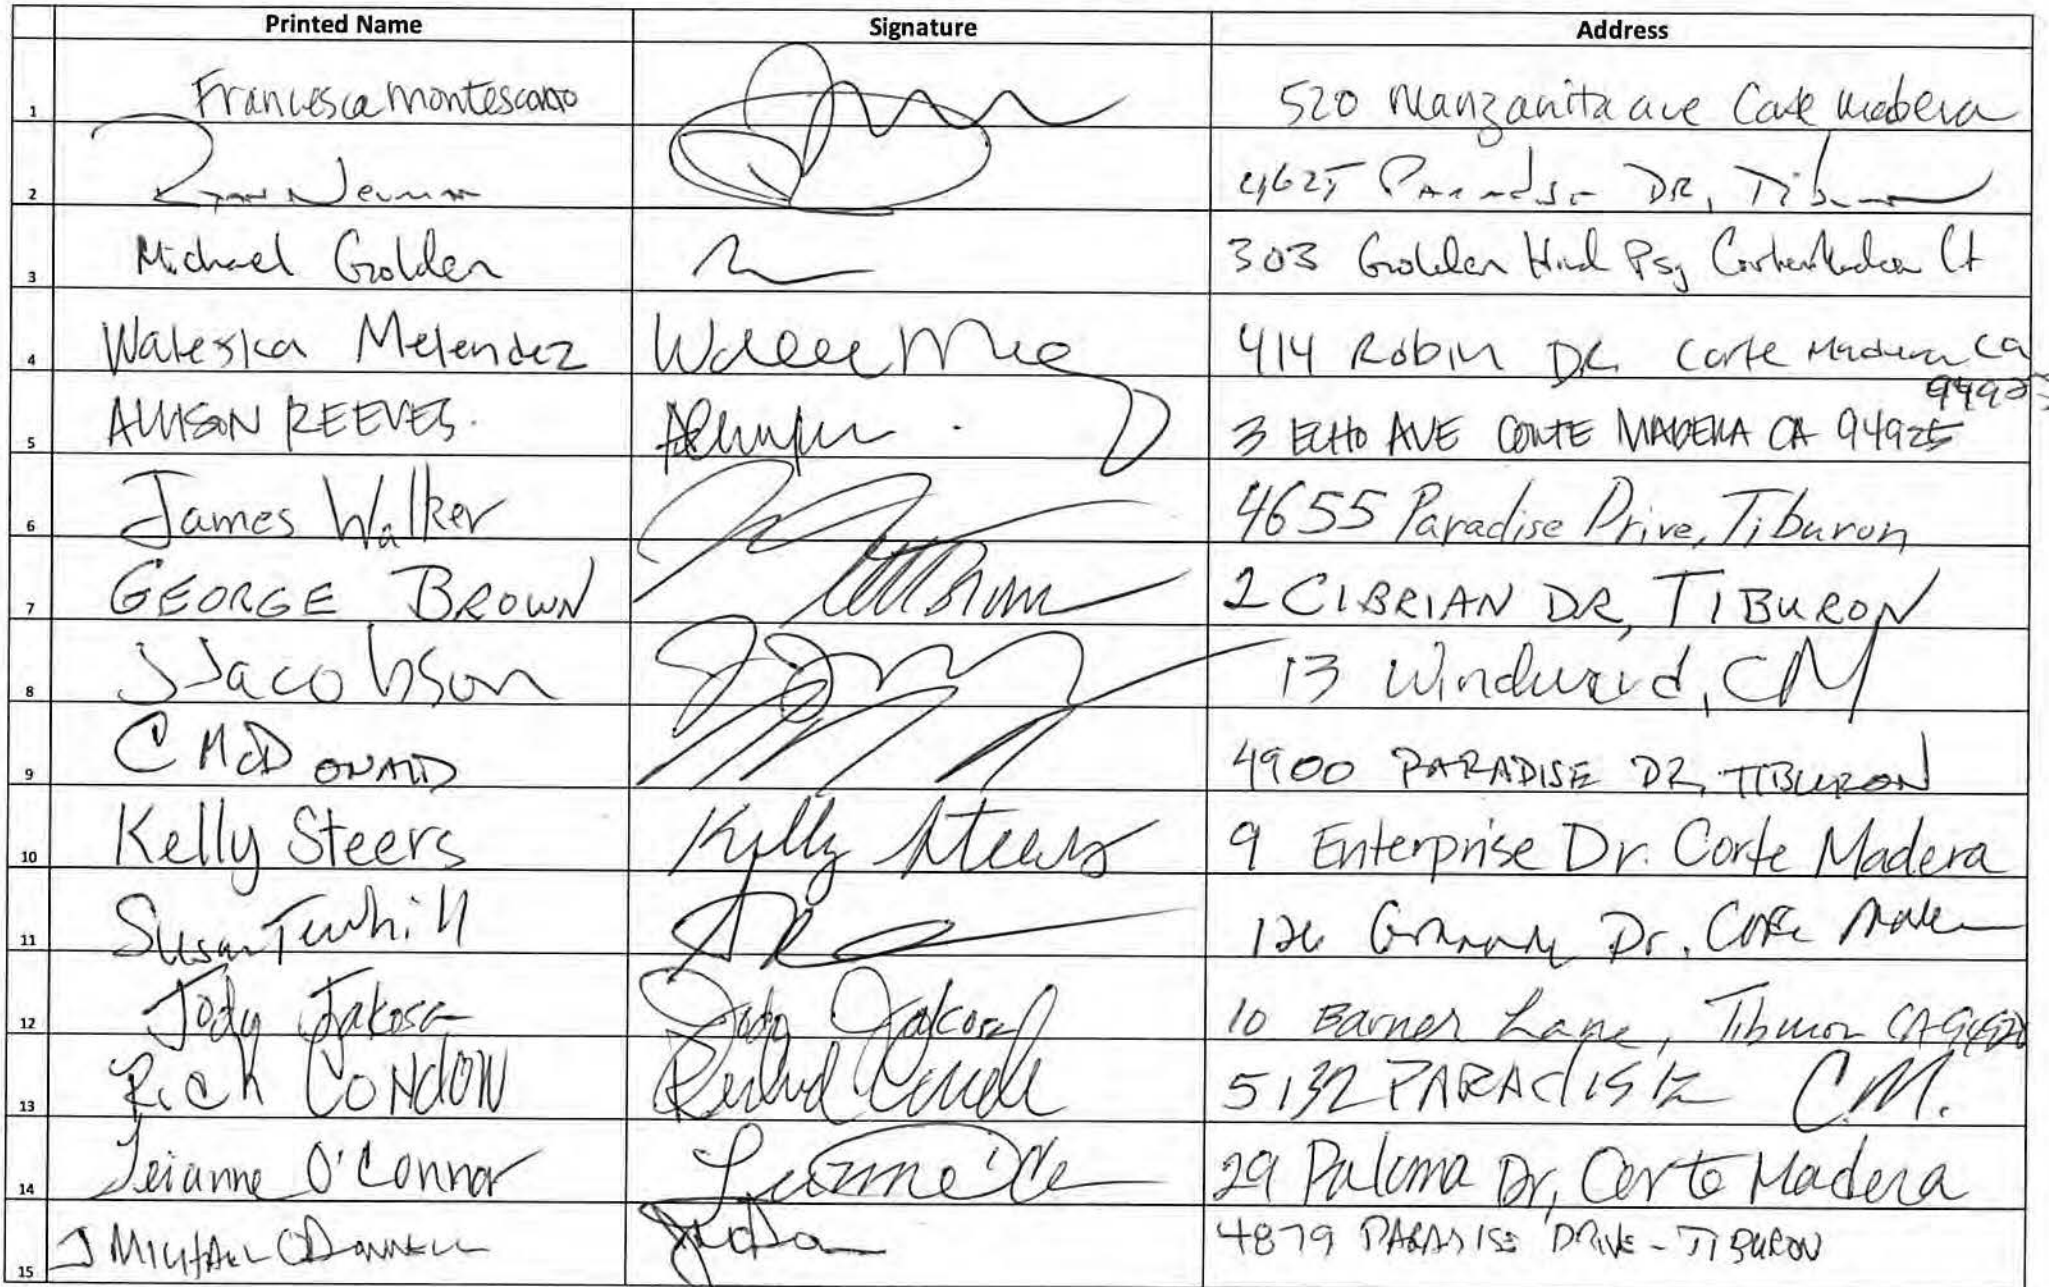 Printed Name Signature Address
1 Francesca Montescano 520 Manzanita ave Corte Madera
2 Ryan Neuman 4625 Paradise DR, Tiburon
3 Michael Golden 303 Golden Hind Psg Corte Madera
4 Waleska Melendez 414 Robin DR Corte Madera Ca
94925
5 ALLISON REEVES. 3 ECHO AVE CORTE MADERA CA 94925
6 James Walker 4655 Paradise Drive, Tiburon
7 GEORGE BROWN 2 CIBRIAN DR, TIBURON
8 J Jacobson 13 Windward, CM
9 C McDONALD 4900 PARADISE DR, TIBURON
10 Kelly Steers Kelly Steers 9 Enterprise Dr. Corte Madera
11 Susan Dr. Corte Madera
12 Jody Jody 10 Lane, Tiburon CA 94920
13 Rich CONdON 5132 PARAdISE C.M.
14 Leianne O'Connor 29 Paloma Dr, Corte Madera
15 J MICHAEL O'DONNELL 4879 PARADISE DRIVE - TIBURON